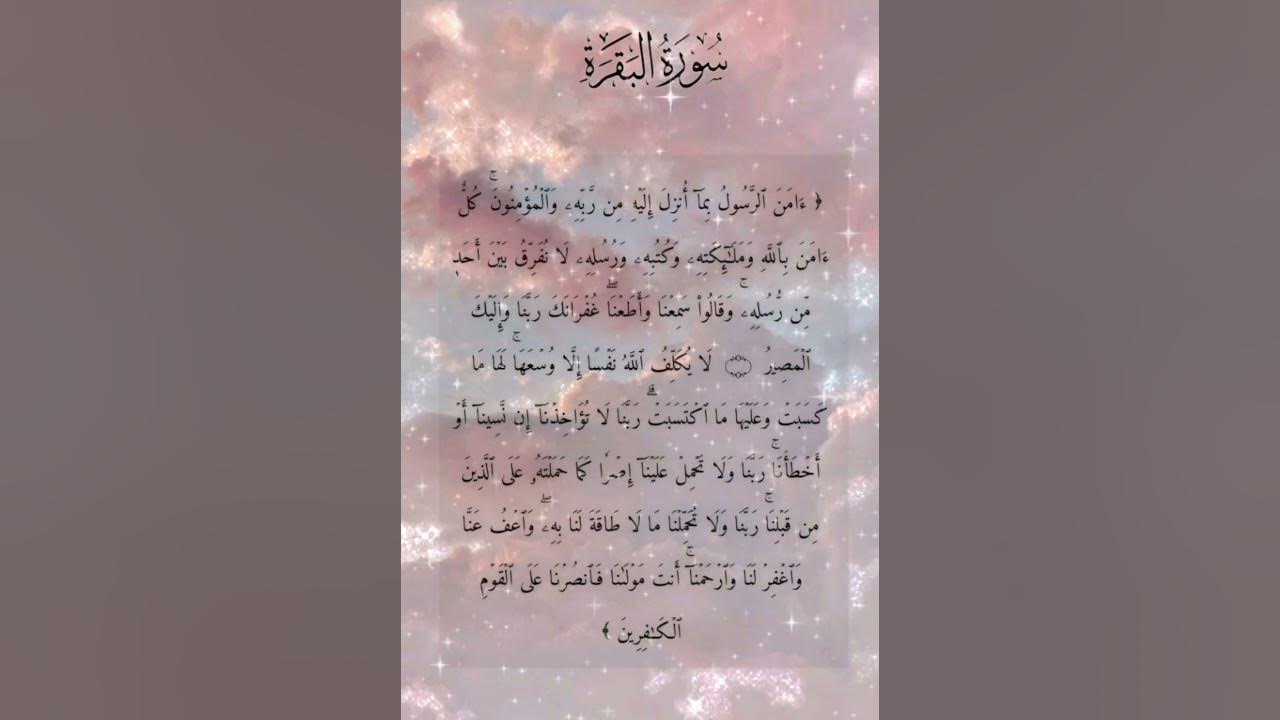 سُورَةُ البَقَرَةِ
﴿ ءَامَنَ ٱلرَّسُولُ بِمَآ أُنزِلَ إِلَيْهِ مِن رَّبِّهِۦ وَٱلْمُؤْمِنُونَۚ كُلٌّ
ءَامَنَ بِٱللَّهِ وَمَلَـٰٓئِكَتِهِۦ وَكُتُبِهِۦ وَرُسُلِهِۦ لَا نُفَرِّقُ بَيْنَ أَحَدٍ
مِّن رُّسُلِهِۦۚ وَقَالُوا۟ سَمِعْنَا وَأَطَعْنَاۖ غُفْرَانَكَ رَبَّنَا وَإِلَيْكَ
ٱلْمَصِيرُ ۝ لَا يُكَلِّفُ ٱللَّهُ نَفْسًا إِلَّا وُسْعَهَاۚ لَهَا مَا
كَسَبَتْ وَعَلَيْهَا مَا ٱكْتَسَبَتْۗ رَبَّنَا لَا تُؤَاخِذْنَآ إِن نَّسِينَآ أَوْ
أَخْطَأْنَاۚ رَبَّنَا وَلَا تَحْمِلْ عَلَيْنَآ إِصْرًا كَمَا حَمَلْتَهُۥ عَلَى ٱلَّذِينَ
مِن قَبْلِنَاۚ رَبَّنَا وَلَا تُحَمِّلْنَا مَا لَا طَاقَةَ لَنَا بِهِۦۖ وَٱعْفُ عَنَّا
وَٱغْفِرْ لَنَا وَٱرْحَمْنَآۚ أَنتَ مَوْلَىٰنَا فَٱنصُرْنَا عَلَى ٱلْقَوْمِ
ٱلْكَـٰفِرِينَ ﴾